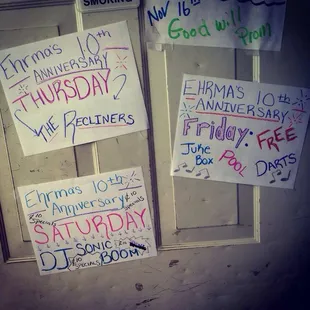 SMOKING
Nov 16th
Good will
Prom
Ehrma's 10th
ANNIVERSARY
THURSDAY
THE RECLINERS
EHRMA'S 10th
ANNIVERSARY
Friday. FREE
Juke
Box POOL DARTS
Ehrma's 10th
Anniversary
$10
Specials
SATURDAY
DJ SONIC
BOOM
$10
SPECIALS